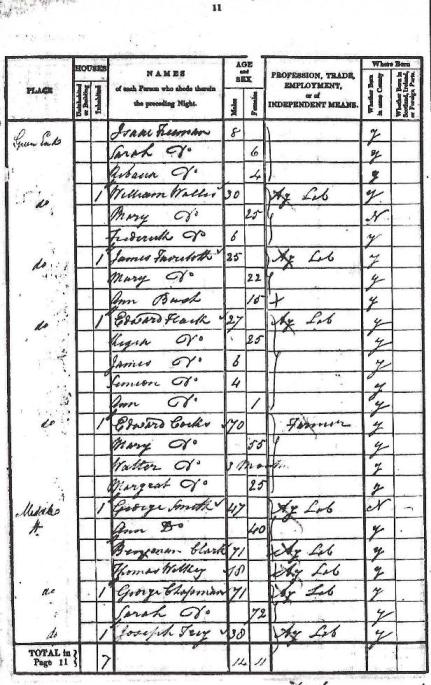 11
HOUSES AGE and SEX Where Born
PLACE Uninhabited or Building Inhabited NAMES of each Person who abode therein the preceding Night. Males Females PROFESSION, TRADE, EMPLOYMENT, or of INDEPENDENT MEANS. Whether Born in same County Whether Born in Scotland, Ireland, or Foreign Parts.
Isaac Freeman 8 y
Sarah Do 6 y
Do 4 y
do 1 William Wallis 30 Ag Lab y
Mary Do 25 N
Frederick Do 6 y
do 1 James 25 Ag Lab y
Mary Do 22 y
Ann Bush 15 y
do 1 Edward 27 Ag Lab y
Do 25 y
James Do 6 y
Simeon Do 4 y
Ann Do 1 y
do 1 Edward Cocks 70 Farmer y
Mary Do 55 y
Walter Do 3 Months y
Margeat Do 25 y
1 George Smith 47 Ag Lab N
Ann Do 40 y
Benjeman Clark 71 Ag Lab y
Thomas Ag Lab y
do 1 George Chapman 71 Ag Lab y
Sarah Do 72 y
do 1 Joseph 38 Ag Lab y
TOTAL in Page 11 7 14 11